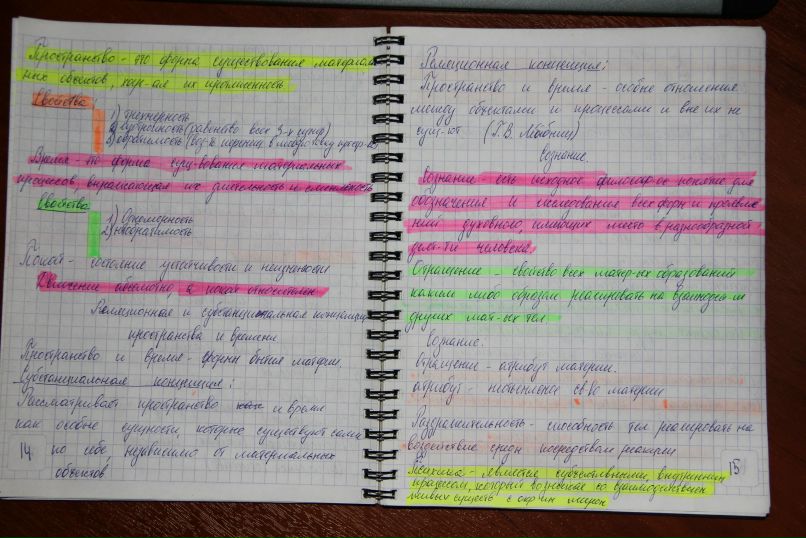 Пространство - это форма существования материаль
ных объектов, хар-ая их протяженность
Свойства:
1) трехмерность
2) (равенство всех 3-х
3) обратимость
Время - это форма сущ-вования материальных
процессов, выражающая их длительность и сменяемость
Свойства
1) Одномерность
2) необратимость
Покой - состояние устойчивости и неизменности
Движение абсолютно, а покой относителен
Реляционная и субстанциальная концепции
пространства и времени
Пространство и время - формы бытия материи.
Субстанциальная концепция:
Рассматривает пространство и время
как особые сущности, которые существуют сами
по себе, независимо от материальных
объектов
14
Реляционная концепция:
Пространство и время - особые отношения
между объектами и процессами и вне их не
сущ-ют (Г.В. Лейбниц)
Сознание.
Сознание есть исходное философ-ое понятие для
обозначения и исследования всех форм и проявле
ний духовного, имеющих место в разнообразной
деят-ти человека.
Отражение - свойство всех матер-ых образований
каким либо образом реагировать на взаимодей-ие
других мат-ых тел
Сознание.
Отражение - атрибут материи.
атрибут - неотъемлемое св-во материи
Раздражительность - способность тел реагировать на
воздействие среды посредством реакции
Психика - является субъективным, внутренним
процессом, который возникает со взаимодействием
живых существ с окр-им миром
15